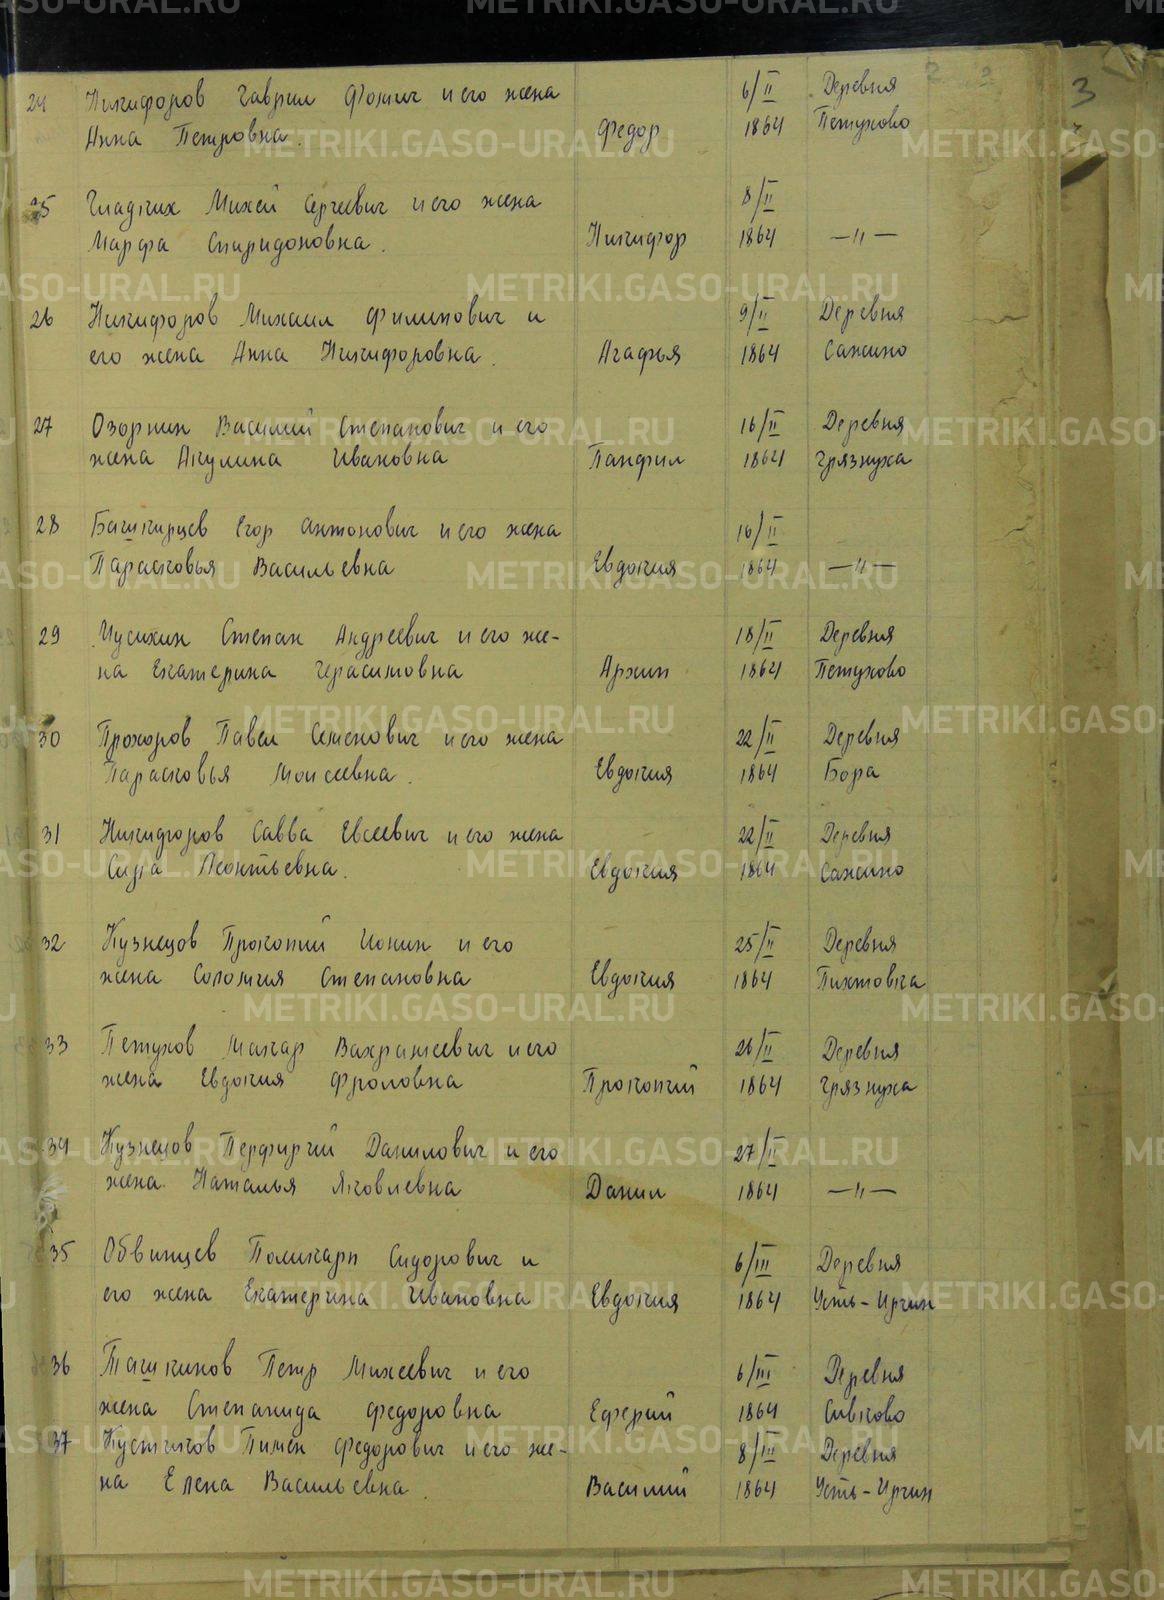 3
24 Никифоров Гаврил Фомич и его жена 6/II Деревня
Анна Петровна. Федор 1864 Петухово
25 Гладких Михей Сергеевич и его жена 8/II
Марфа Спиридоновна. Никифор 1864 —"—
26 Никифоров Михаил Филипович и 9/II Деревня
его жена Анна Никифоровна. Агафья 1864 Сажино
27 Озорнин Василий Степанович и его 16/II Деревня
жена Акулина Ивановна Панфил 1864 Грязнуха
28 Башкирцев Егор Антонович и его жена 16/II
Парасковья Васильевна Евдокия 1864 —"—
29 Мусихин Степан Андреевич и его же- 18/II Деревня
на Екатерина Герасимовна Архип 1864 Петухово
30 Прохоров Павел Семенович и его жена 22/II Деревня
Парасковья Моисеевна. Евдокия 1864 Бора
31 Никифоров Савва Евсеевич и его жена 22/II Деревня
Леонтьевна. Евдокия 1864 Сажино
32 Кузнецов Прокопий Ионин и его 25/II Деревня
жена Соломия Степановна Евдокия 1864 Пихтовка
33 Петухов Макар Вахрамеевич и его 26/II Деревня
жена Евдокия Фроловна Прокопий 1864 Грязнуха
34 Кузнецов Перфирий Данилович и его 27/II
жена Наталья Яковлевна Данил 1864 —"—
35 Обвинцев Поликарп Сидорович и 6/III Деревня
его жена Екатерина Ивановна Евдокия 1864 Усть-Иргин
36 Ташкинов Петр Михеевич и его 6/III Деревня
жена Степанида Федоровна Еферий 1864 Сивково
37 Кустиков Пимен Федорович и его же- 8/III Деревня
на Елена Васильевна. Василий 1864 Усть-Иргин
METRIKI.GASO-URAL.RU